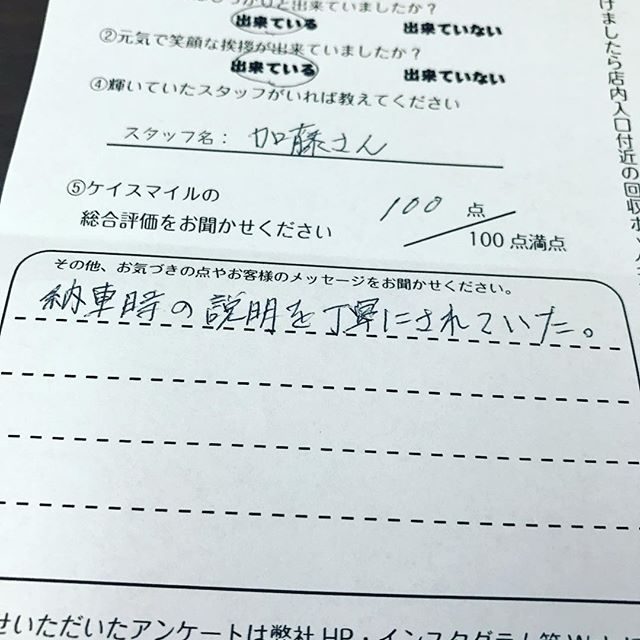 出来ていましたか？
出来ている 出来ていない
②元気で笑顔な挨拶が出来ていましたか？
出来ている 出来ていない
④輝いていたスタッフがいれば教えてください
スタッフ名： 加藤さん
⑤ケイスマイルの
総合評価をお聞かせください
100 点
100 点満点
その他、お気づきの点やお客様のメッセージをお聞かせください。
納車時の説明を丁寧にされていた。
せいただいたアンケートは弊社 HP・インスタグラム等
けましたら店内入口付近の回収ボ